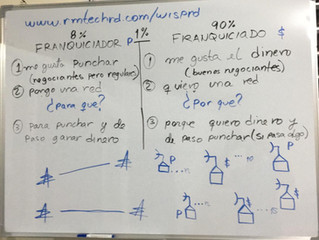 www.rmtechrd.com/wisprd
8% 1% 90%
FRANQUICIADOR P FRANQUICIADO $
① me gusta punchar
(negociantes pero regular)
② pongo una red
¿para que?
③ Para punchar y de
paso ganar dinero
① me gusta el dinero
(buenos negociantes)
② quiero una red
¿Por que?
③ porque quiero dinero y
de paso punchar (si pasa algo)
P $ P
P $ $